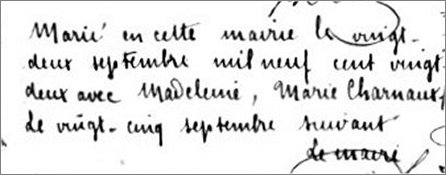 Marié en cette mairie le vingt-
deux septembre mil neuf cent vingt
deux avec Madeleine, Marie Charnaux,
Le vingt-cinq septembre suivant
Le maire